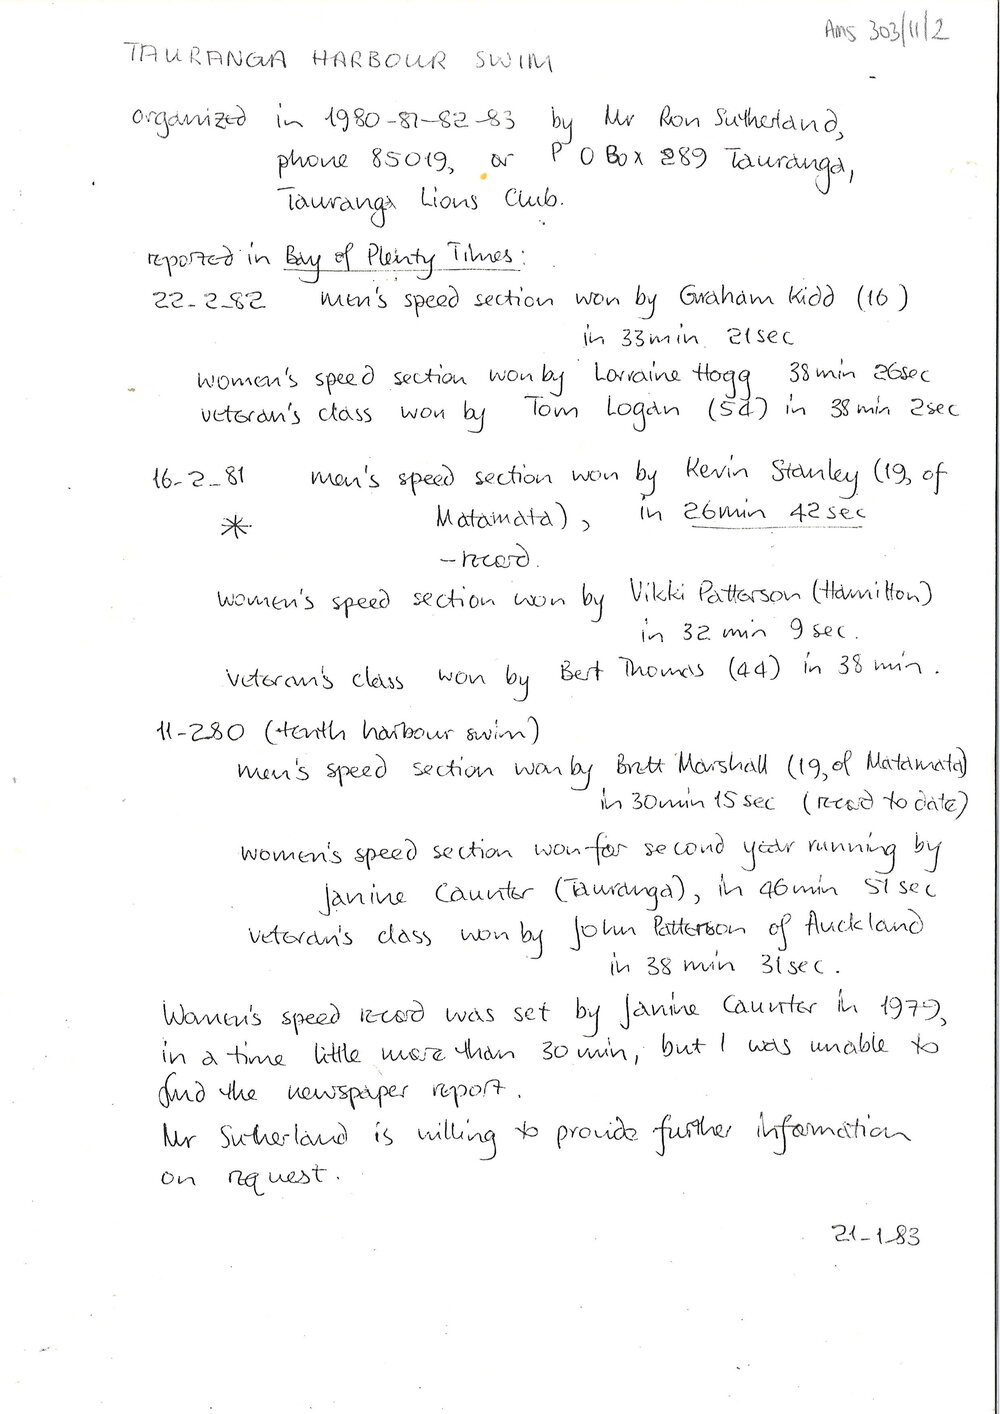 Ams 303/11/2
TAURANGA HARBOUR SWIM
organized in 1980-81-82-83 by Mr Ron Sutherland,
phone 85019, or P O Box 289 Tauranga,
Tauranga Lions Club.
reported in Bay of Plenty Times:
22-2-82 men's speed section won by Graham Kidd (16)
in 33min 21sec
women's speed section won by Lorraine Hogg 38min 26sec
veteran's class won by Tom Logan (54) in 38min 2sec
16-2-81 men's speed section won by Kevin Stanley (19, of
* Matamata), in 26min 42sec
-record.
women's speed section won by Vikki Patterson (Hamilton)
in 32 min 9 sec.
veteran's class won by Bert Thomas (44) in 38 min.
11-2-80 (tenth harbour swim)
men's speed section won by Brett Marshall (19, of Matamata)
in 30min 15sec (record to date)
women's speed section won for second year running by
Janine Caunter (Tauranga), in 46min 51sec
veteran's class won by John Patterson of Auckland
in 38 min 31sec.
Women's speed record was set by Janine Caunter in 1979,
in a time little more than 30 min, but I was unable to
find the newspaper report.
Mr Sutherland is willing to provide further information
on request.
21-1-83